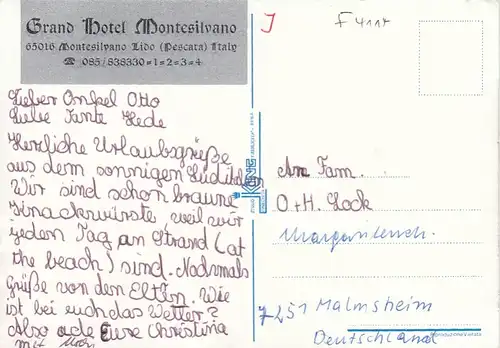 Grand Hotel Montesilvano
65016 Montesilvano Lido (Pescara) Italy
☎ 085/838330=1=2=3=4
J
F 4114
Lieber Onkel Otto
Liebe Tante Hede
Herzliche Urlaubsgrüße
aus dem sonnigen Süditalien
Wir sind schon braune
Knackwürste weil wir
jeden Tag am Strand (at
the beach) sind. Nochmals
Grüße von den Eltern. Wie
ist bei euch das Wetter?
Also ade Eure Christina
mit
An Fam.
O+H. Lock
7251 Malmsheim
Deutschland